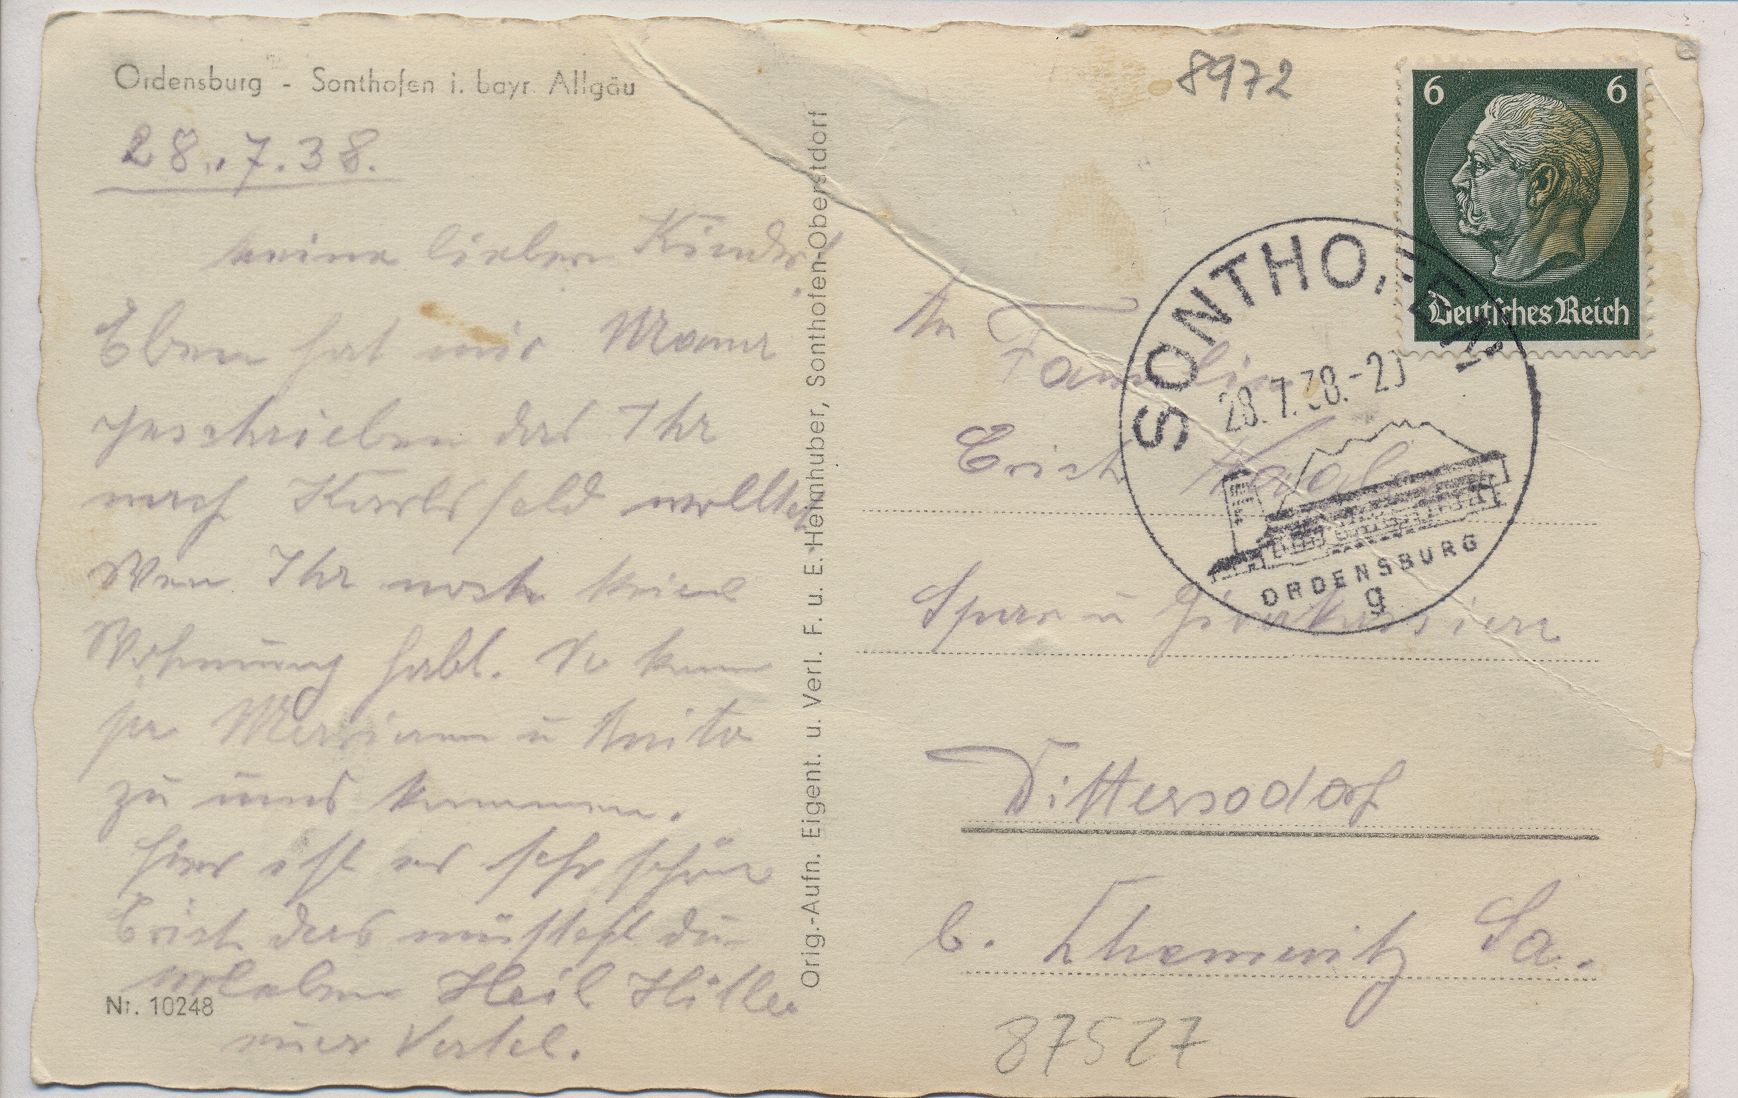 Ordensburg - Sonthofen i. bayr. Allgäu
28.7.38.
meine lieben Kinder!
Eben hat mir Mama
geschrieben das Ihr
nach Karlsfeld wolltet
Wen Ihr noch keine
Wohnung habt. So kann
ja u Anita
zu uns kommen.
hier ist es sehr schön
Erich das müßtest du
erleben Heil Hitler
euer
Nr. 10248
Orig.-Aufn. Eigent. u. Verl. F. u. E. Heimhuber, Sonthofen-Oberstdorf
8972
6 6
Deutsches Reich
SONTHOFEN
28.7.38.-20
ORDENSBURG
g
An Familie
Erich
Spar u Girokassierer
Dittersdorf
b. Chemnitz Sa.
87527